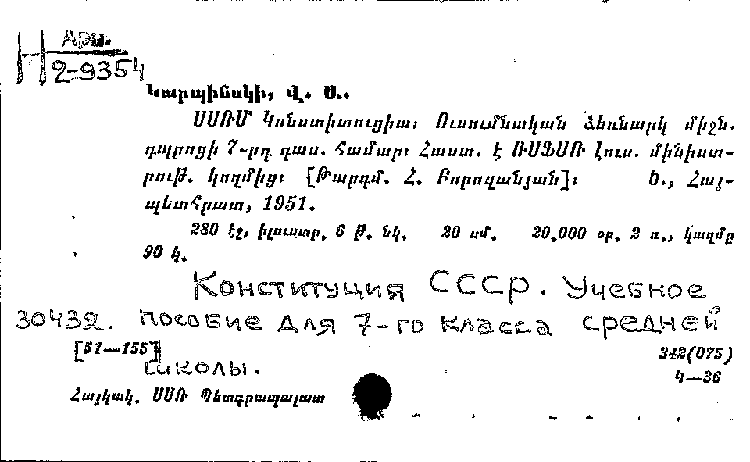 Н Арм.
2-9354
Կարպինսկի, Վ. Ա..
ՍՍՌՄ Կոնստիտուցիա: Ուսումնական ձեռնարկ միջն.
դպրոցի 7-րդ դաս. համար: Հաստ. է ՌՍՖՍՌ լուս. մինիստ-
րութ. կողմից: [Թարգմ. Հ. Բորոզանչյան]: Ե., Հայ-
պետհրատ, 1951.
280 էջ, իլյուստր. 6 թ. նկ. 20 սմ. 20.000 օր. 2 ռ., կազմը
90 կ.
Конституция СССР. Учебное
30432. пособие для 7-го класса средней
[51—155]
школы.
342(075)
Կ—36
Հայկակ. ՍՍՌ Պետգրապալատ